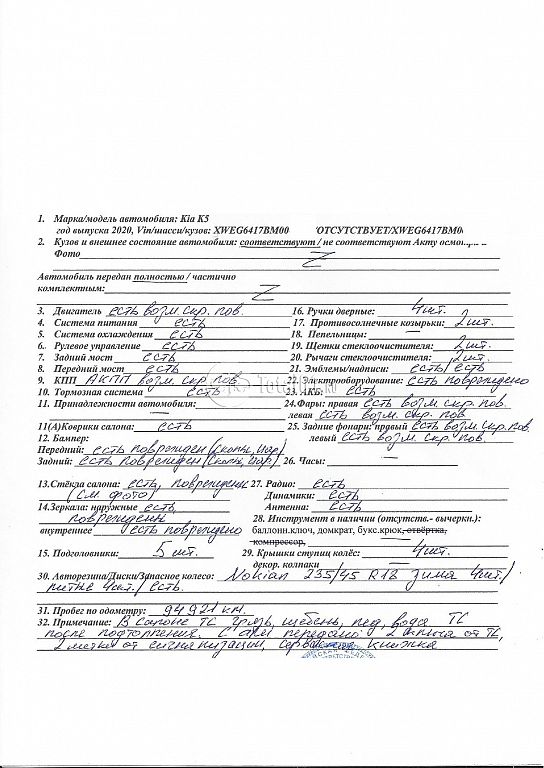 1. Марка/модель автомобиля: Kia K5
год выпуска 2020, Vin/шасси/кузов: XWEG6417BM00 'ОТСУТСТВУЕТ/XWEG6417BM0
2. Кузов и внешнее состояние автомобиля: соответствуют / не соответствуют Акту осмо
Фото Z
Автомобиль передан полностью / частично
комплектным: Z
3. Двигатель есть возм. скр. пов. 16. Ручки дверные: 4 шт.
4. Система питания есть 17. Противосолнечные козырьки: 2 шт.
5. Система охлаждения есть 18. Пепельницы: —
6. Рулевое управление есть 19. Щетки стеклоочистителя: 2 шт.
7. Задний мост есть 20. Рычаги стеклоочистителя: 2 шт.
8. Передний мост есть 21. Эмблемы/надписи: есть/ есть
9. КПП АКПП возм. скр. пов. 22. Электрооборудование: есть повреждено
10. Тормозная система есть 23. АКБ: есть
11. Принадлежности автомобиля: 24.Фары: правая есть возм. скр. пов.
— левая есть возм. скр. пов
11(А)Коврики салона: есть 25. Задние фонари: правый есть возм. скр. пов.
12. Бампер: левый есть возм. скр. пов.
Передний: есть поврежден (сколы, цар)
Задний: есть поврежден (сколы, цар) 26. Часы: —
13.Стёкла салона: есть, повреждены 27. Радио: есть
(см. фото) Динамики: есть
14.Зеркала: наружные есть, Антенна: есть
повреждены 28. Инструмент в наличии (отсутств.- вычеркн.):
внутреннее есть повреждено баллонн.ключ, домкрат, букс.крюк, отвёртка,
компрессор,
15. Подголовники: 5 шт. 29. Крышки ступиц колёс: 4 шт.
декор. колпаки —
30. Авторезина/Диски/Запасное колесо: Nokian 235/45 R18 зима 4шт/
литые 4шт./ есть.
31. Пробег по одометру: 94921 км.
32. Примечание: В салоне ТС грязь, щебень, лед, вода ТС
после подтопления. С а/м передано: 2 ключа от ТС,
2 метки от сигнализации, сервисная книжка